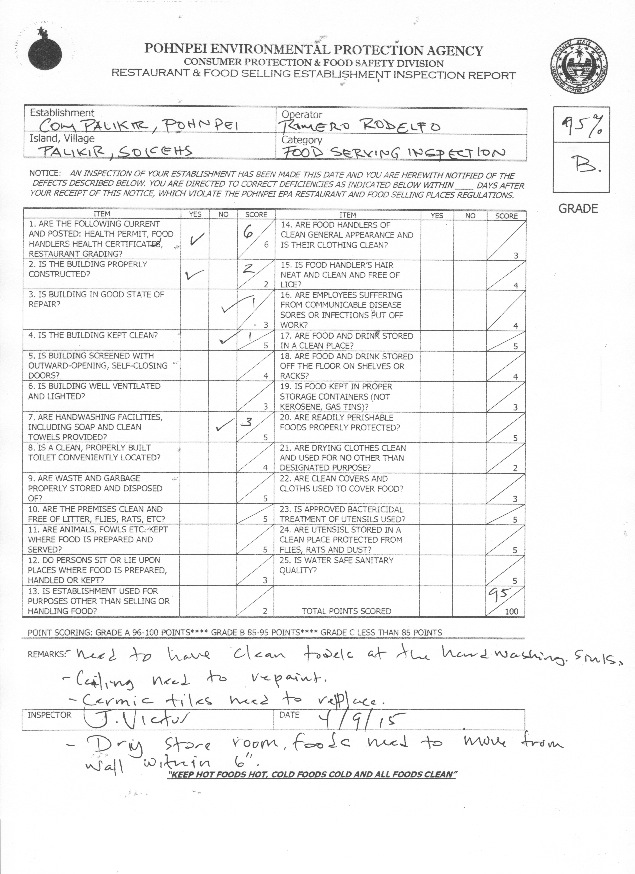 POHNPEI ENVIRONMENTAL PROTECTION AGENCY
CONSUMER PROTECTION & FOOD SAFETY DIVISION
RESTAURANT & FOOD SELLING ESTABLISHMENT INSPECTION REPORT
Establishment
COM PALIKIR, POHNPEI
Operator
RAMERO RODELFO
Island, Village
PALIKIR, SOKEHS
Category
FOOD SERVING INSPECTION
95%
B.
GRADE
NOTICE: AN INSPECTION OF YOUR ESTABLISHMENT HAS BEEN MADE THIS DATE AND YOU ARE HEREWITH NOTIFIED OF THE
DEFECTS DESCRIBED BELOW. YOU ARE DIRECTED TO CORRECT DEFICIENCIES AS INDICATED BELOW WITHIN ____ DAYS AFTER
YOUR RECEIPT OF THIS NOTICE, WHICH VIOLATE THE POHNPEI EPA RESTAURANT AND FOOD SELLING PLACES REGULATIONS.
ITEM YES NO SCORE ITEM YES NO SCORE
1. ARE THE FOLLOWING CURRENT
AND POSTED: HEALTH PERMIT, FOOD
HANDLERS HEALTH CERTIFICATES,
RESTAURANT GRADING?
✓ 6 6
2. IS THE BUILDING PROPERLY
CONSTRUCTED?
✓ 2 2
3. IS BUILDING IN GOOD STATE OF
REPAIR?
✓ 1 3
4. IS THE BUILDING KEPT CLEAN?
✓ 1 5
5. IS BUILDING SCREENED WITH
OUTWARD-OPENING, SELF-CLOSING
DOORS?
4
6. IS BUILDING WELL VENTILATED
AND LIGHTED?
3
7. ARE HANDWASHING FACILITIES,
INCLUDING SOAP AND CLEAN
TOWELS PROVIDED?
✓ 3 5
8. IS A CLEAN, PROPERLY BUILT
TOILET CONVENIENTLY LOCATED?
4
9. ARE WASTE AND GARBAGE
PROPERLY STORED AND DISPOSED
OF?
5
10. ARE THE PREMISES CLEAN AND
FREE OF LITTER, FLIES, RATS, ETC?
5
11. ARE ANIMALS, FOWLS ETC. KEPT
WHERE FOOD IS PREPARED AND
SERVED?
5
12. DO PERSONS SIT OR LIE UPON
PLACES WHERE FOOD IS PREPARED,
HANDLED OR KEPT?
3
13. IS ESTABLISHMENT USED FOR
PURPOSES OTHER THAN SELLING OR
HANDLING FOOD?
2
14. ARE FOOD HANDLERS OF
CLEAN GENERAL APPEARANCE AND
IS THEIR CLOTHING CLEAN?
3
15. IS FOOD HANDLER'S HAIR
NEAT AND CLEAN AND FREE OF
LICE?
4
16. ARE EMPLOYEES SUFFERING
FROM COMMUNICABLE DISEASE
SORES OR INFECTIONS PUT OFF
WORK?
4
17. ARE FOOD AND DRINK STORED
IN A CLEAN PLACE?
5
18. ARE FOOD AND DRINK STORED
OFF THE FLOOR ON SHELVES OR
RACKS?
4
19. IS FOOD KEPT IN PROPER
STORAGE CONTAINERS (NOT
KEROSENE, GAS TINS)?
3
20. ARE READILY PERISHABLE
FOODS PROPERLY PROTECTED?
5
21. ARE DRYING CLOTHES CLEAN
AND USED FOR NO OTHER THAN
DESIGNATED PURPOSE?
2
22. ARE CLEAN COVERS AND
CLOTHS USED TO COVER FOOD?
3
23. IS APPROVED BACTERICIDAL
TREATMENT OF UTENSILS USED?
5
24. ARE UTENSISL STORED IN A
CLEAN PLACE PROTECTED FROM
FLIES, RATS AND DUST?
5
25. IS WATER SAFE SANITARY
QUALITY?
5
TOTAL POINTS SCORED 95 100
POINT SCORING: GRADE A 96-100 POINTS**** GRADE B 85-95 POINTS**** GRADE C LESS THAN 85 POINTS
REMARKS: need to have clean towels at the hand washing sinks.
- Ceiling need to repaint.
- Cermic tiles need to replace.
INSPECTOR J. Victor DATE 4/9/15
- Dry store room, foods need to move from
wall within 6".
"KEEP HOT FOODS HOT, COLD FOODS COLD AND ALL FOODS CLEAN"